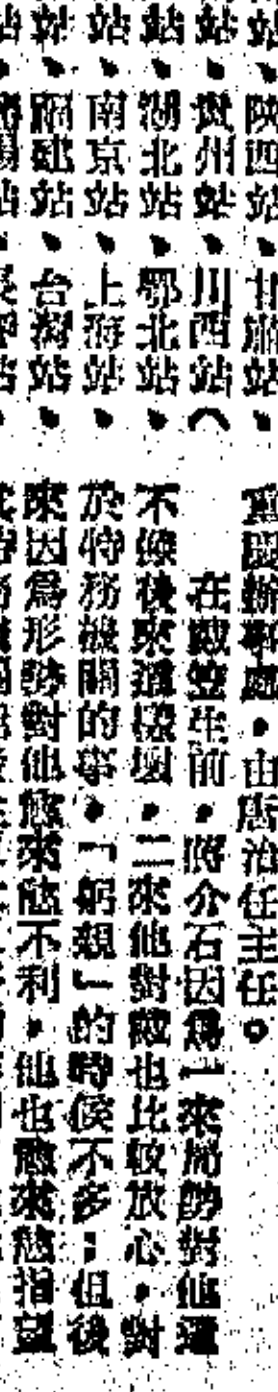 站、陝西站、甘肅站、
站、貴州站、川西站(
站、湖北站、鄂北站、
站、南京站、上海站、
站、福建站、台灣站、
重慶辦事處,由唐治任主任。
在戴笠生前,蔣介石因爲一來局勢對他還
不像後來這樣壞,二來他對戴也比較放心,對
於特務機關的事,「躬親」的時候不多;但後
來因爲形勢對他愈來愈不利,他也愈來愈指望